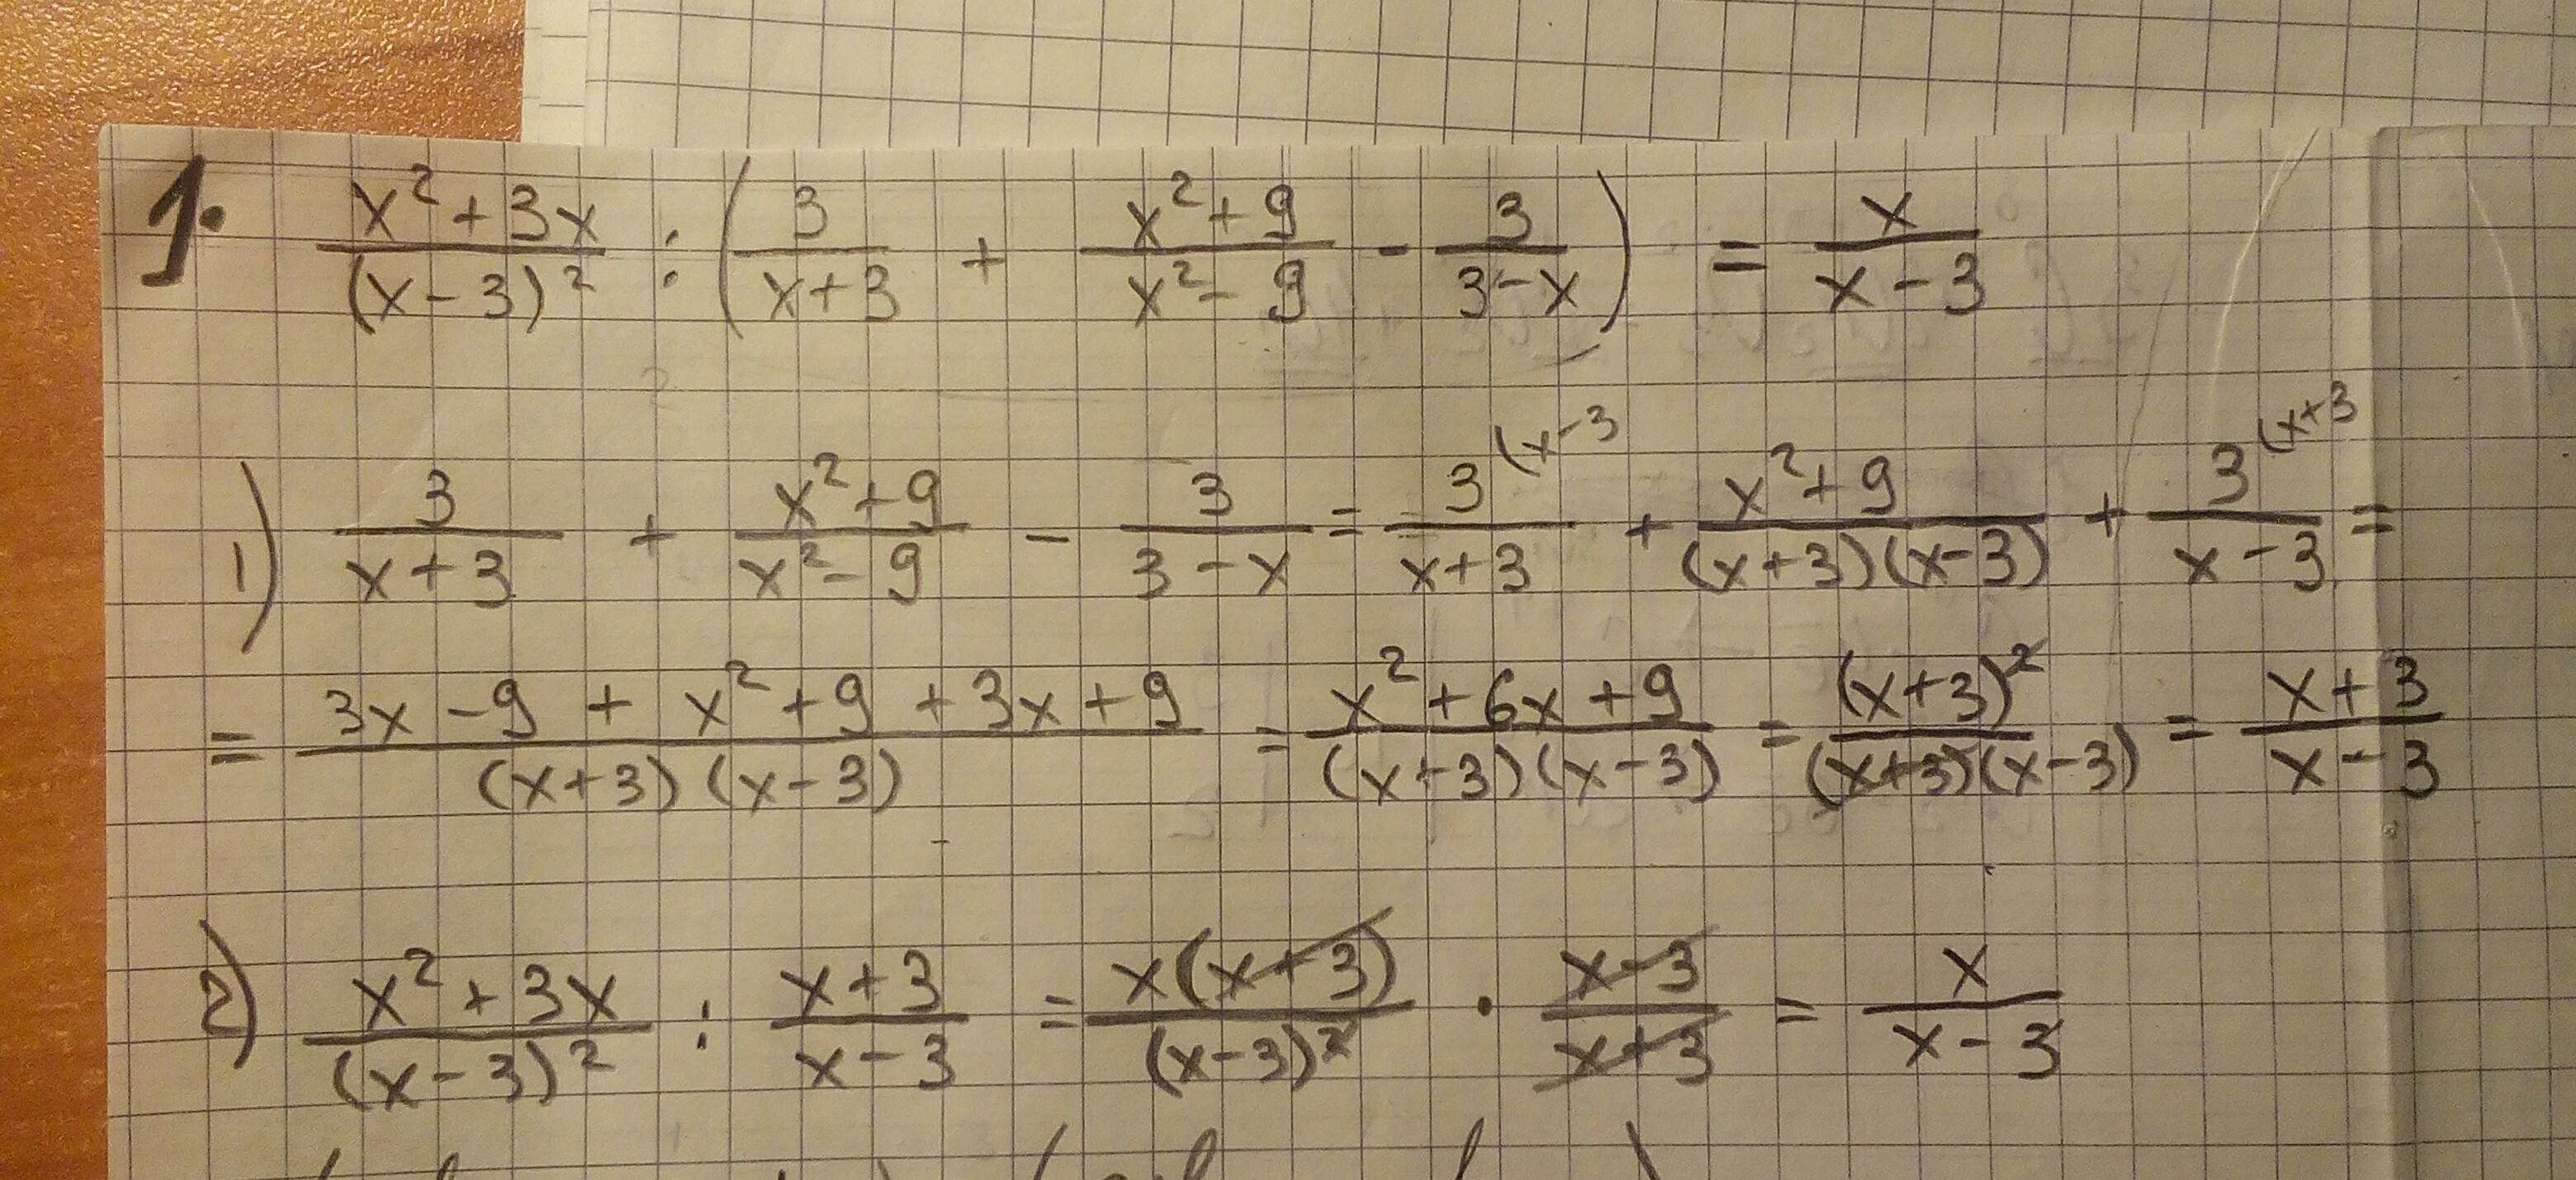 1. (x²+3x)/(x-3)² : (3/(x+3) + (x²+9)/(x²-9) - 3/(3-x)) = x/(x-3)
1) 3/(x+3) + (x²+9)/(x²-9) - 3/(3-x) = 3^(x-3/(x+3) + (x²+9)/((x+3)(x-3)) + 3^(x+3/(x-3) =
= (3x-9+x²+9+3x+9)/((x+3)(x-3)) = (x²+6x+9)/((x+3)(x-3)) = (x+3)²/((x+3)(x-3)) = (x+3)/(x-3)
2) (x²+3x)/(x-3)² : (x+3)/(x-3) = x(x+3)/(x-3)² · (x-3)/(x+3) = x/(x-3)